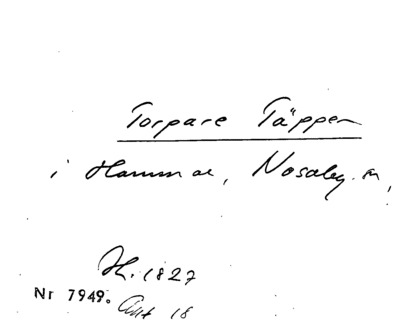 Torpare Täppen
i Hammar, Nosaby sn,
H. 1827
Nr 7949.
18